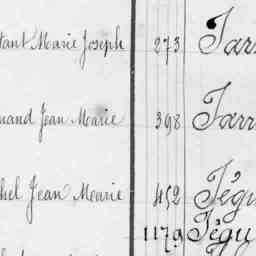 tant Marie Joseph 273 Jar
nand Jean Marie 398 Jarr
hel Jean Marie 452 Jégu
1179 Jégu